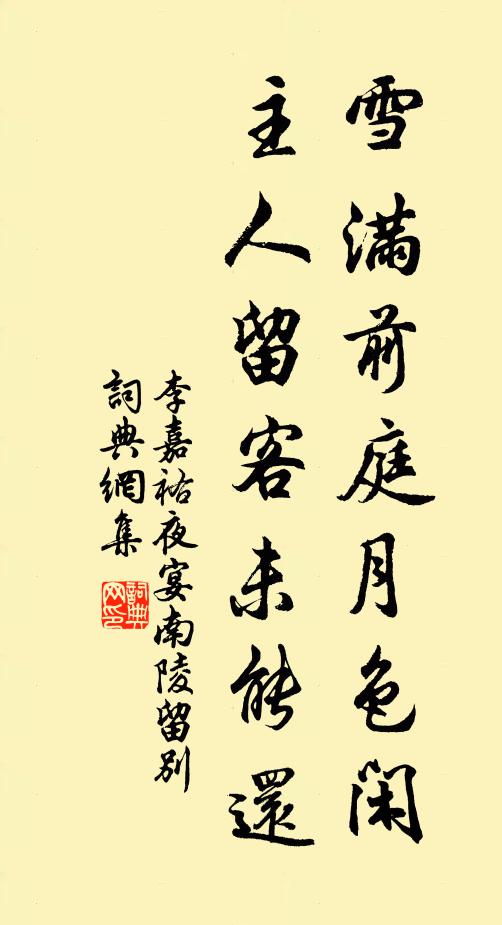 雪滿前庭月色閑
主人留客未能還
李嘉祐夜宴南陵留別
詞典網集
詞典
网印